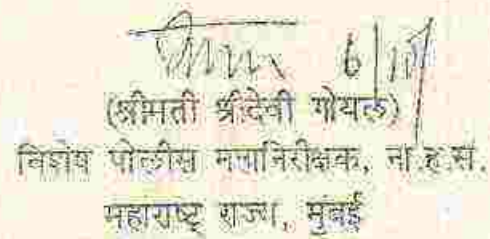 6/10
(श्रीमती श्रीदेवी गोयल)
विशेष पोलीस महानिरीक्षक, ना.ह.सं.
महाराष्ट्र राज्य, मुंबई